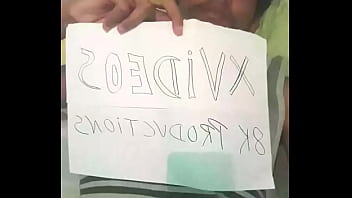 XVIDEOS
8K PRODUCTIONS